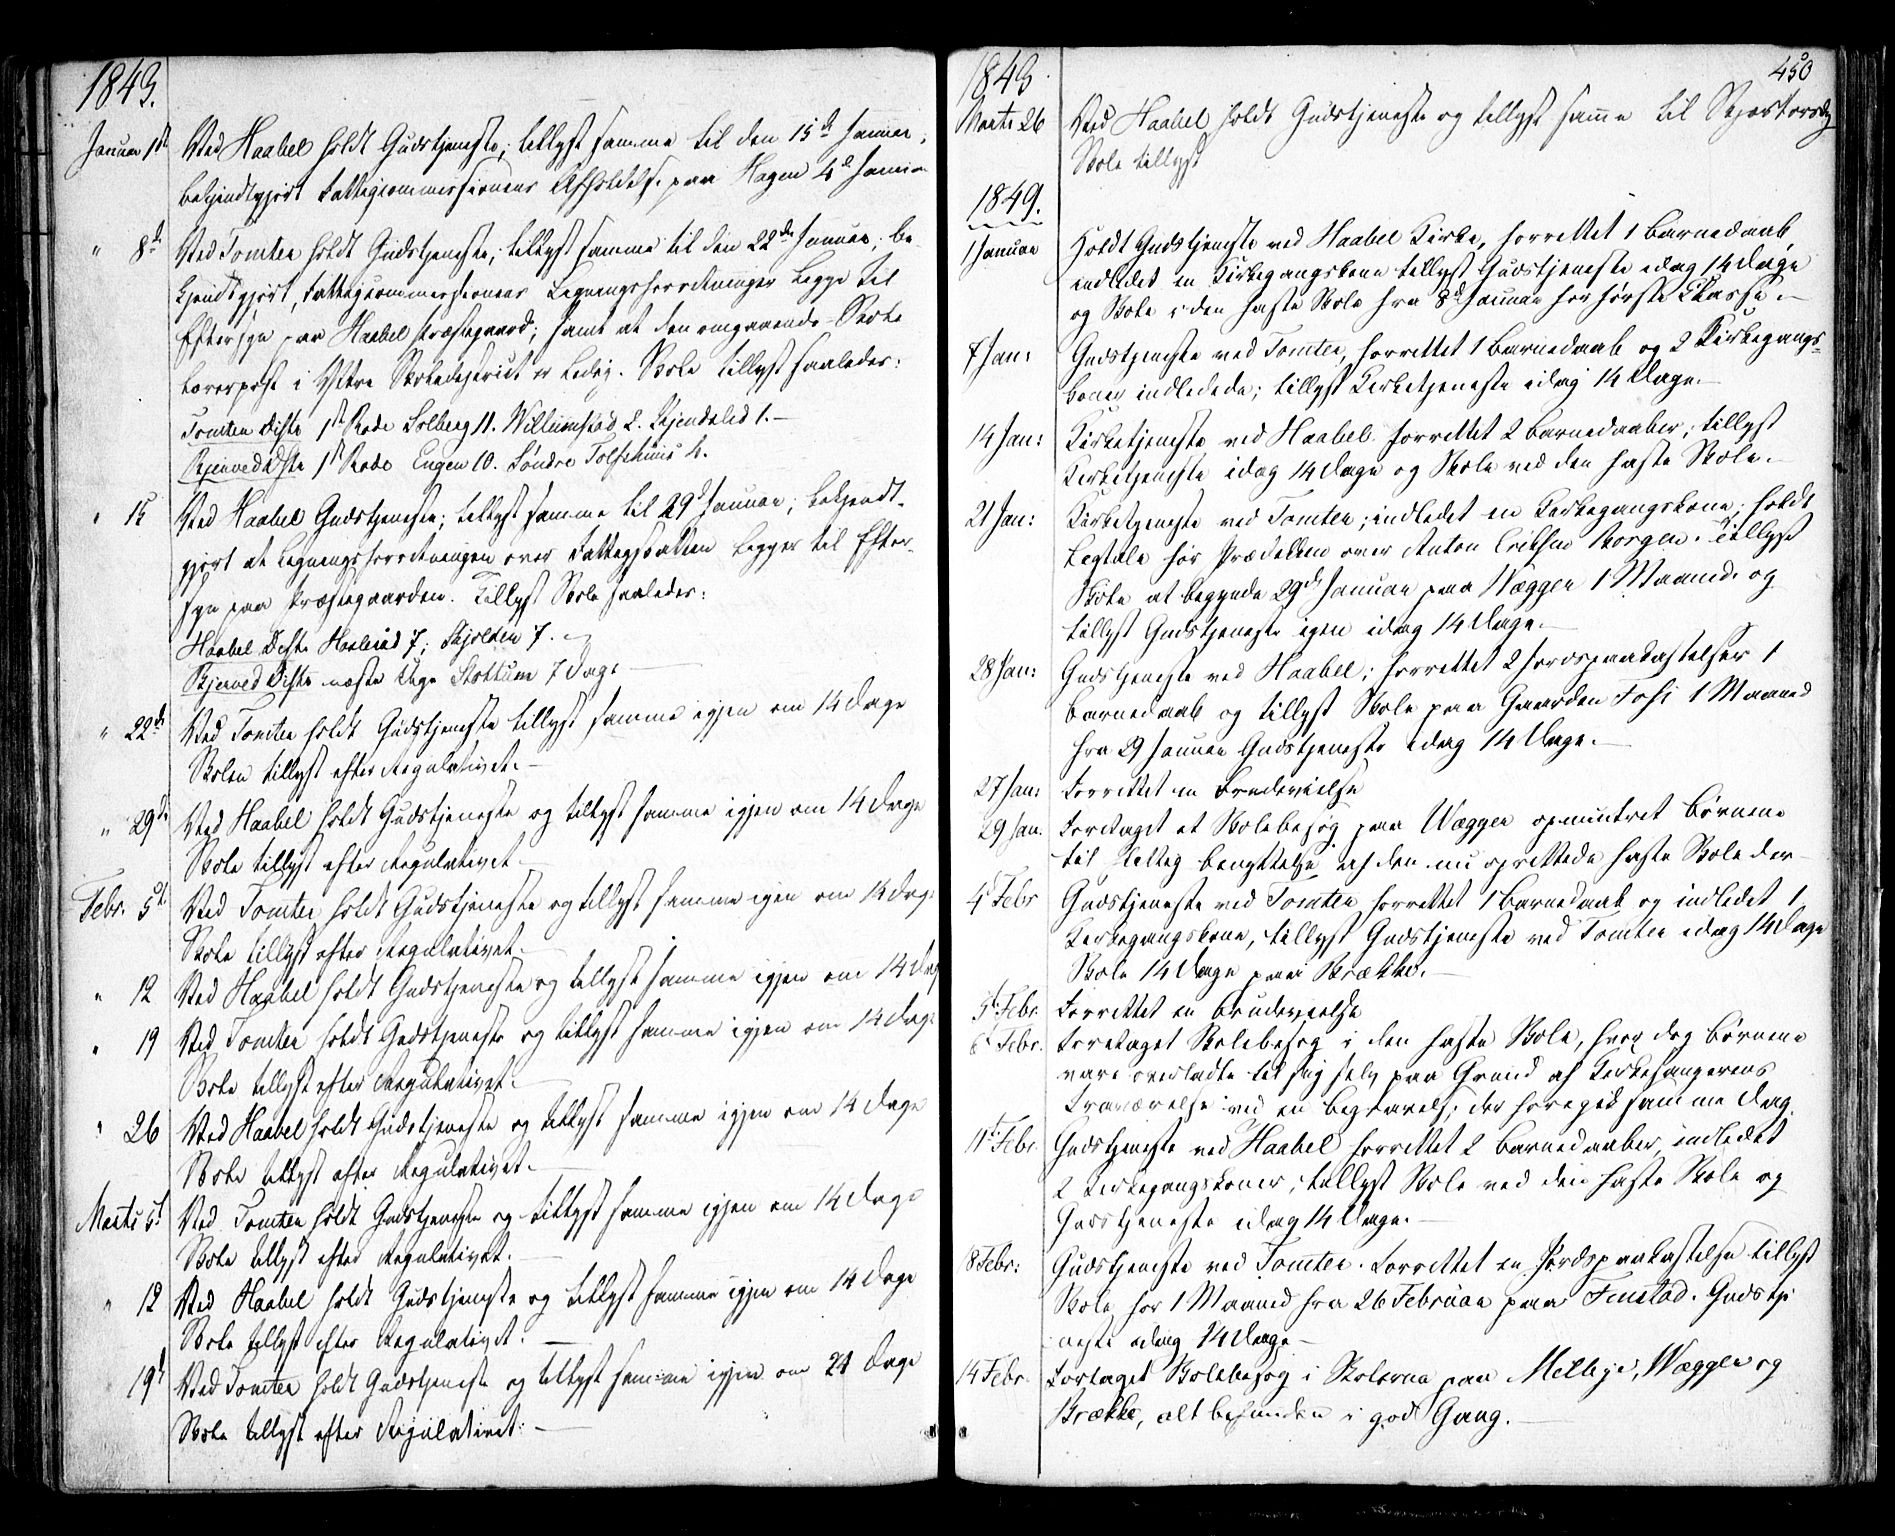 1843.
Januar 1ste Ved Haabel holdt Gudstjeneste; tillyst samme til den 15de Januar,
bekjendtgjort Fattigcommissionens Afholdelse paa Hagen 4de Januar
" 8de Ved Tomter holdt Gudstjeneste; tillyst samme til den 22de Januar; be-
kjendtgjort, Fattigcommissionens Ligningsforretninger ligge til
Eftersyn paa Haabel Præstegaard; samt at den omgaaende Skole
Lærerpost i Ytre Skoledistrict er ledig. Skole tillyst saaledes:
Tomter Distr 1ste Rode Solberg 11. Willumstad 2. Kjendaled 1.—
Kjerved Distr 1ste Rode Engen 10. Søndre Tolfshuus 4.
" 15 Ved Haabel Gudstjeneste; tillyst samme til 29de Januar; bekjendt-
gjort at Ligningsforretningen over Fattigskatten ligger til Efter-
syn paa Præstegaarden. Tillyst Skole saaledes:
Haabel Distr Haslerud 7; Skjolden 7.
Kjerved Distr næste Uge Slottum 7 Dage
" 22de Ved Tomter holdt Gudstjeneste tillyst samme igjen om 14 Dage
Skolen tillyst efter Regulativet.—
" 29de Ved Haabel holdt Gudstjeneste og tillyst samme igjen om 14 Dage
Skole tillyst efter Regulativet.—
Febr. 5te Ved Tomter holdt Gudstjeneste og tillyst samme igen om 14 Dage
Skole tillyst efter Regulativet.
" 12 Ved Haabel holdt Gudstjeneste og tillyst samme igjen om 14 Dag
" 19 Ved Tomter holdt Gudstjeneste og tillyst samme igjen om 14 Dage
Skole tillyst efter Regulativet.
" 26 Ved Haabel holdt Gudstjeneste og tillyst samme igjen om 14 Dage
Skole tillyst efter Regulativet.
Marts 5te Ved Tomter holdt Gudstjeneste og tillyst samme igjen om 14 Dage
Skole tillyst efter Regulativet.
" 12 Ved Haabel holdt Gudstjeneste og tillyst samme igjen om 14 Dage
Skole tillyst efter Regulativet. —
19de Ved Tomter holdt Gudstjeneste og tillyst samme igjen om 21 Dage
Skole tillyst efter Regulativet. —
1843 450
Marts 26 Ved Haabel holdt Gudstjeneste og tillyst samme til Skjærtorsdag
Skole tillyst
1849.
1 Januar Holdt Gudstjeneste ved Haabel Kirke, forrettet 1 Barnedaab,
indledet en Kirkegangskone tillyst Gudstjeneste idag 14 Dage
og Skole i den faste Skole fra 8de Januar for første Classe.—
7 Jan: Gudstjeneste ved Tomter, forrettet 1 Barnedaab og 2 Kirkegangs-
koner indledede; tillyst Kirketjeneste idag 14 Dage.—
14 Jan: Kirketjeneste ved Haabel forrettet 2 Barnedaaber; tillyst
Kirketjeneste idag 14 Dage og Skole ved den faste Skole.
21 Jan: Kirketjeneste ved Tomter; indledet en Kirkegangskone; holdt
Ligtale før Prædikken over Anton Eriksen Borgen. Tillyst
Skole at begynde 29de Januar paa Wægger 1 Maaned og
tillyst Gudstjeneste igen idag 14 Dage.—
28 Jan: Gudstjeneste ved Haabel; forrettet 2 Jordspaakastelser 1
Barnedaab og tillyst Skole paa Gaarden Foss 1 Maaned
fra 29 Januar Gudstjeneste idag 14 Dage.—
27 Jan: Forrettet en Brudevielse
29 Jan. Foretaget et Skolebesøg paa Wægger opmuntret Børnene
til flittig benyttelse af den nu oprettede faste Skole der
4 Febr Gudstjeneste ved Tomter forrettet 1 Barnedaab og indledet 1
Kirkegangskone, tillyst Gudstjeneste ved Tomter idag 14 Dage
Skole 14 Dage paa Brække.—
5 Febr. Forrettet en Brudevielse
6 Febr. Foretaget Skolebesøg i den faste Skole, hvor dog Børnene
vare overladte til sig selv paa Grund af Kirkesangerens
Fraværelse ved en Begravelse der foregik samme Dag.
11te Febr. Gudstjeneste ved Haabel forrettet 2 Barnedaaber indledet
2 Kirkegangskoner, tillyst Skole ved den faste Skole og
Gudstjeneste idag 14 Dage.—
8 Febr: Gudstjeneste ved Tomter. Forrettet en Jordspaakastelse tillyst
Skole for 1 Maaned fra 26 Februar paa Finstad. Gudstje
neste idag 14 Dage—
14 Febr. Foretaget Skolebesøg i Skolerne paa Melbye, Wægger og
Brække, alt befunden i god Gang.—